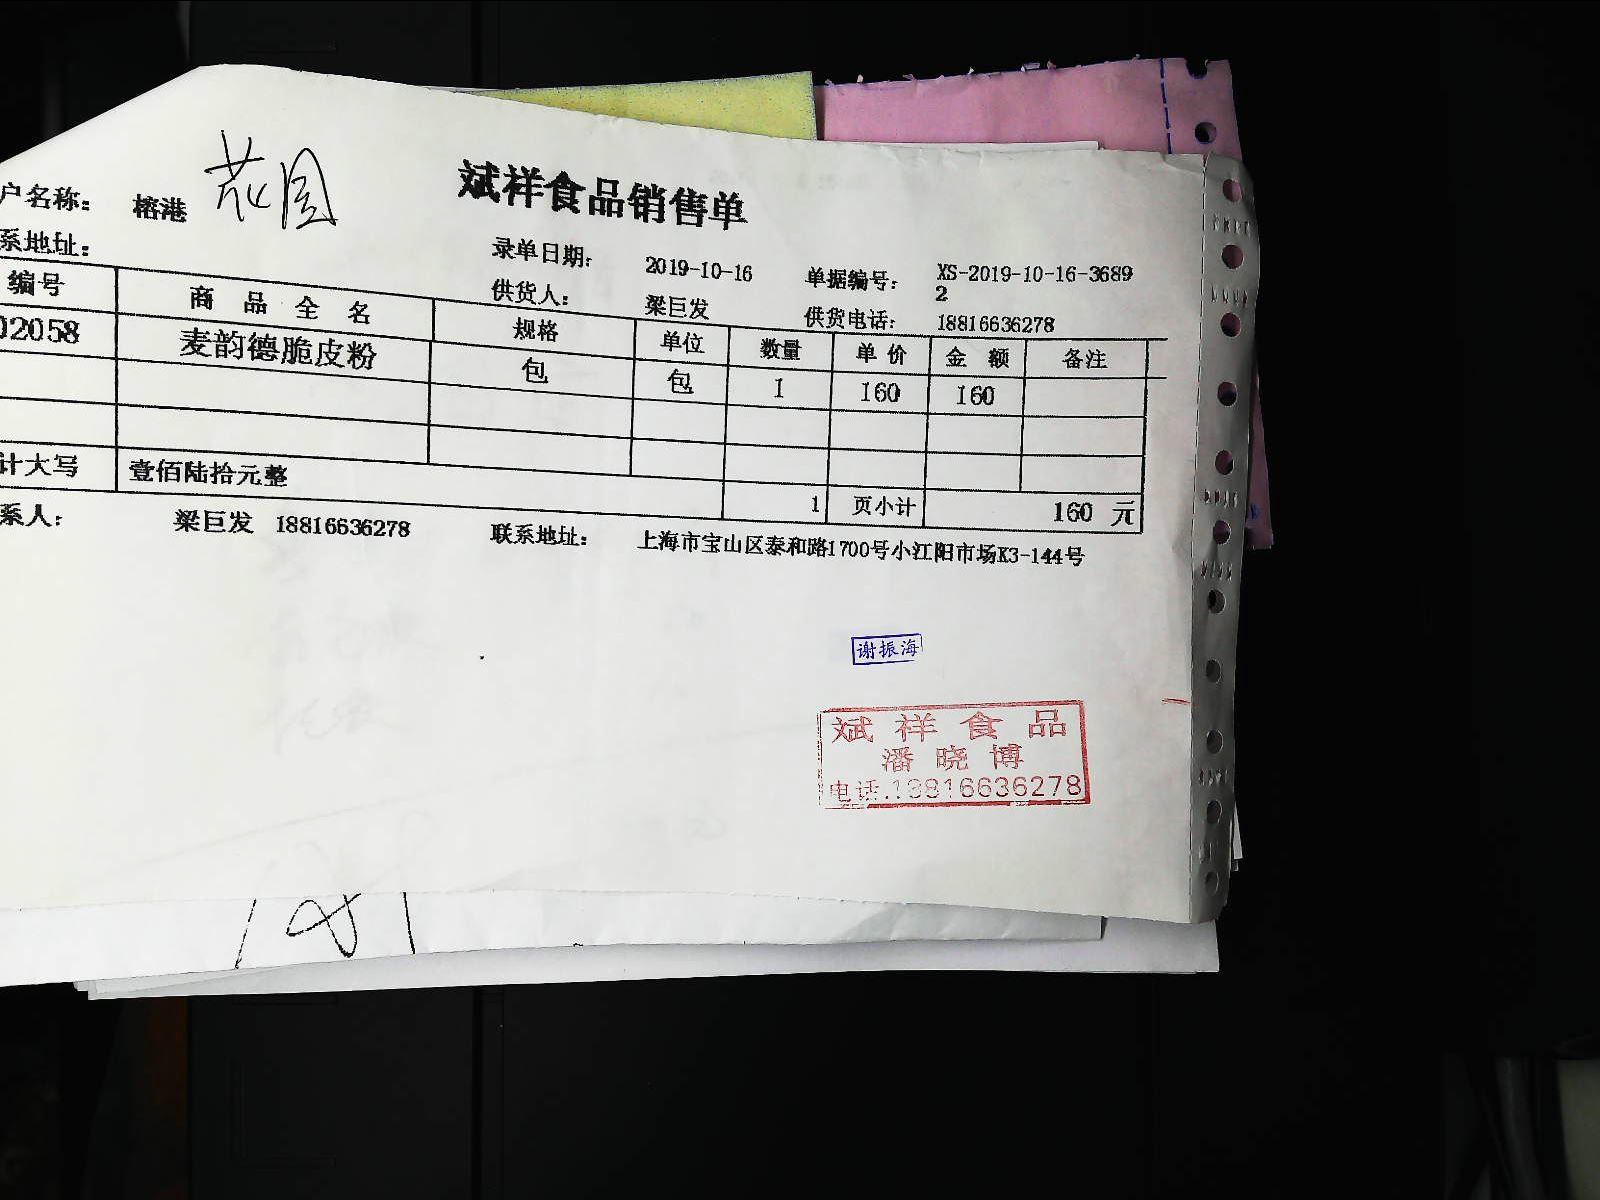 斌祥食品销售单
户名称: 榕港 花园
系地址:
录单日期: 2019-10-16 单据编号: XS-2019-10-16-36892
供货人: 梁巨发 供货电话: 18816636278
编号 商品全名 规格 单位 数量 单价 金额 备注
02058 麦韵德脆皮粉 包 包 1 160 160
计大写 壹佰陆拾元整 1 页小计 160 元
系人: 梁巨发 18816636278 联系地址: 上海市宝山区泰和路1700号小江阳市场K3-144号
谢振海
斌祥食品
潘晓博
电话.18816636278